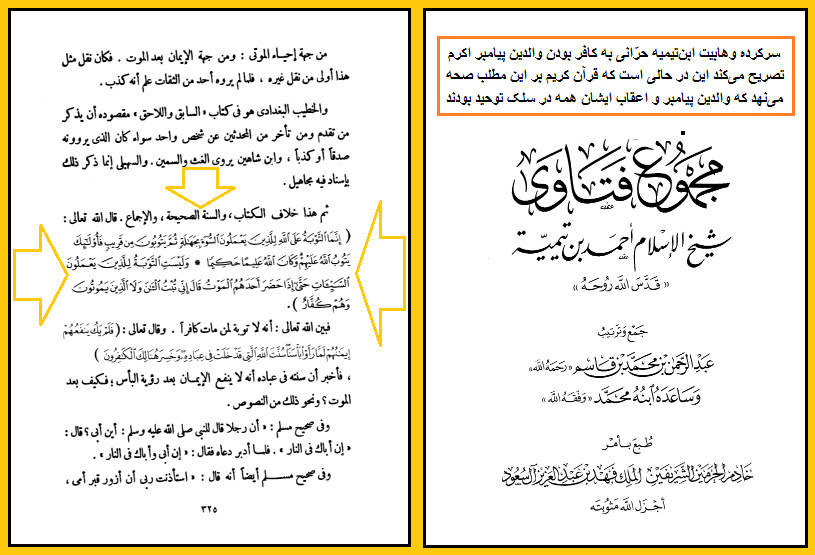 سرکرده وهابیت ابن‌تیمیه حرّانی به کافر بودن والدین پیامبر اکرم
تصریح می‌کند این در حالی است که قرآن کریم بر این مطلب صحه
می‌نهد که والدین پیامبر و اعقاب ایشان همه در سلک توحید بودند
مجموع فتاوى
شيخ الإسلام أحمد بن تيمية
« قدّس الله روحه »
جمع وترتيب
عبد الرحمن بن محمد بن قاسم « رحمه الله »
وساعده ابنه محمد « وفقه الله »
طبع بأمر
خادم الحرمين الشريفين الملك فهد بن عبد العزيز آل سعود
أجزل الله مثوبته
من جهة إحياء الموتى : ومن جهة الإيمان بعد الموت . فكان نقل مثل
هذا أولى من نقل غيره ، فلما لم يروه أحد من الثقات علم أنه كذب .
والخطيب البغدادى هو فى كتاب « السابق واللاحق » مقصوده أن يذكر
من تقدم ومن تأخر من المحدثين عن شخص واحد سواء كان الذى يروونه
صدقاً أو كذباً ، وابن شاهين يروى الغث والسمين . والسهيلى إنما ذكر ذلك
بإسناد فيه مجاهيل .
ثم هذا خلاف الكتاب ، والسنة الصحيحة ، والإجماع . قال الله تعالى :
( إِنَّمَا التَّوْبَةُ عَلَى اللَّهِ لِلَّذِينَ يَعْمَلُونَ السُّوءَ بِجَهَالَةٍ ثُمَّ يَتُوبُونَ مِن قَرِيبٍ فَأُولَٰئِكَ
يَتُوبُ اللَّهُ عَلَيْهِمْ وَكَانَ اللَّهُ عَلِيمًا حَكِيمًا * وَلَيْسَتِ التَّوْبَةُ لِلَّذِينَ يَعْمَلُونَ
السَّيِّئَاتِ حَتَّىٰ إِذَا حَضَرَ أَحَدَهُمُ الْمَوْتُ قَالَ إِنِّي تُبْتُ الْآنَ وَلَا الَّذِينَ يَمُوتُونَ
وَهُمْ كُفَّارٌ ) .
فبين الله تعالى : أنه لا توبة لمن مات كافراً . وقال تعالى : ( فَلَمْ يَكُ يَنفَعُهُمْ
إِيمَانُهُمْ لَمَّا رَأَوْا بَأْسَنَا سُنَّتَ اللَّهِ الَّتِي قَدْ خَلَتْ فِي عِبَادِهِ وَخَسِرَ هُنَالِكَ الْكَافِرُونَ )
، فأخبر أن سنته فى عباده أنه لا ينفع الإيمان بعد رؤية البأس ؛ فكيف بعد
الموت ؟ ونحو ذلك من النصوص .
وفى صحيح مسلم : « أن رجلا قال للنبى صلى الله عليه وسلم : أين أبى ؟ قال :
« إن أباك فى النار » . فلما أدبر دعاه فقال : « إن أبى وأباك فى النار » .
وفى صحيح مسلم أيضاً أنه قال : « استأذنت ربى أن أزور قبر أمى ،
٣٢٥